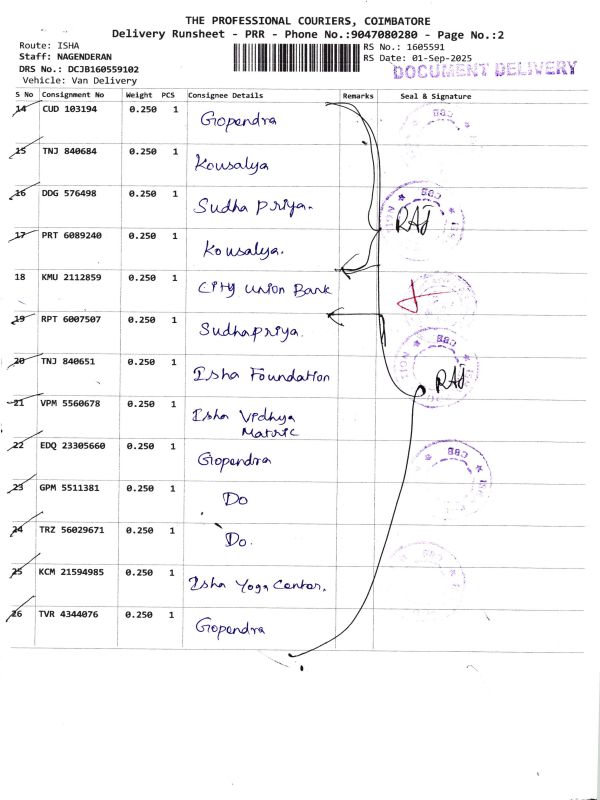 THE PROFESSIONAL COURIERS, COIMBATORE
Delivery Runsheet - PRR - Phone No.:9047080280 - Page No.:2
Route: ISHA
Staff: NAGENDERAN
DRS No.: DCJB160559102
Vehicle: Van Delivery
RS No.: 1605591
RS Date: 01-Sep-2025
DOCUMENT DELIVERY
S No Consignment No Weight PCS Consignee Details Remarks Seal & Signature
14 CUD 103194 0.250 1 Gopendra
15 TNJ 840684 0.250 1 Kousalya
16 DDG 576498 0.250 1 Sudha Priya.
RAJ
17 PRT 6089240 0.250 1 Kousalya.
18 KMU 2112859 0.250 1 City Union Bank
19 RPT 6007507 0.250 1 Sudhapriya.
20 TNJ 840651 0.250 1 Isha Foundation
RAJ
21 VPM 5560678 0.250 1 Isha Vidhya
Matric
22 EDQ 23305660 0.250 1 Gopendra
23 GPM 5511381 0.250 1 Do
24 TRZ 56029671 0.250 1 Do.
25 KCM 21594985 0.250 1 Isha Yoga Center.
26 TVR 4344076 0.250 1 Gopendra